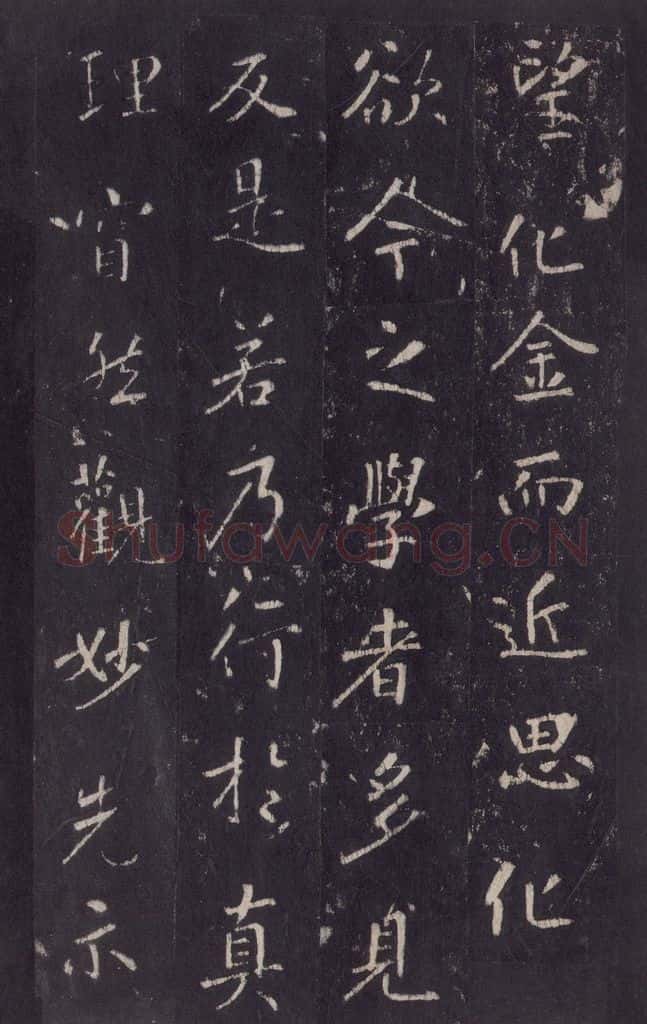 望化金而近思化
欲今之學者多見
反是若乃行於真
理窅然觀妙先示
Shufawang.CN